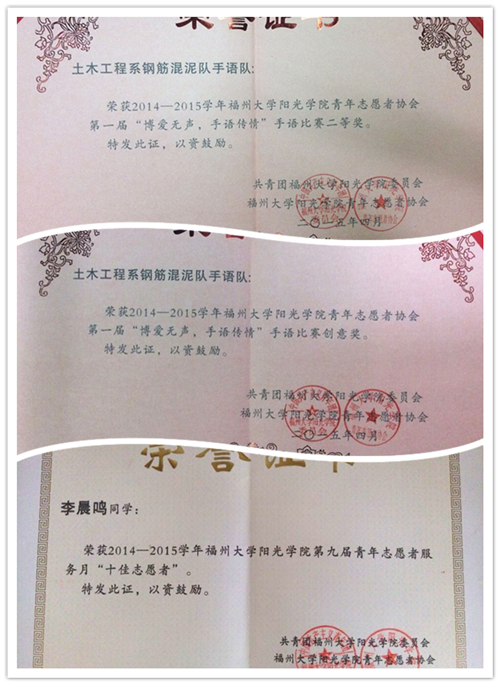 荣誉证书
土木工程系钢筋混泥队手语队：
荣获2014—2015学年福州大学阳光学院青年志愿者协会
第一届“博爱无声，手语传情”手语比赛二等奖。
特发此证，以资鼓励。
共青团福州大学阳光学院委员会
福州大学阳光学院青年志愿者协会
二〇一五年四月
土木工程系钢筋混泥队手语队：
荣获2014—2015学年福州大学阳光学院青年志愿者协会
第一届“博爱无声，手语传情”手语比赛创意奖。
特发此证，以资鼓励。
共青团福州大学阳光学院委员会
福州大学阳光学院青年志愿者协会
二〇一五年四月
荣誉证书
李晨鸣同学：
荣获2014—2015学年福州大学阳光学院第九届青年志愿者服
务月“十佳志愿者”。
特发此证，以资鼓励。
共青团福州大学阳光学院委员会
福州大学阳光学院青年志愿者协会